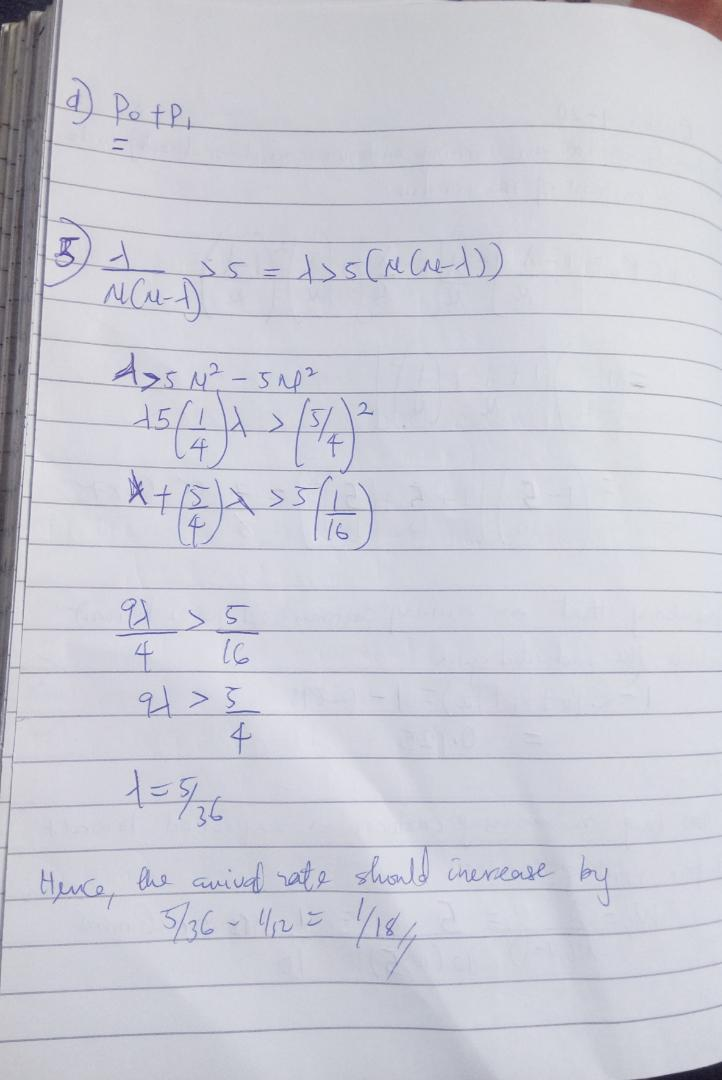 d) P₀ + P₁
=
5) λ/(μ(μ-λ)) > 5 = λ > 5(μ(μ-λ))
λ > 5μ² - 5μλ²
λ5(1/4)λ > (5/4)²
λ + (5/4)λ > 5(1/16)
9λ/4 > 5/16
9λ > 5/4
λ = 5/36
Hence, the arrival rate should increase by
5/36 - 1/12 = 1/18 //